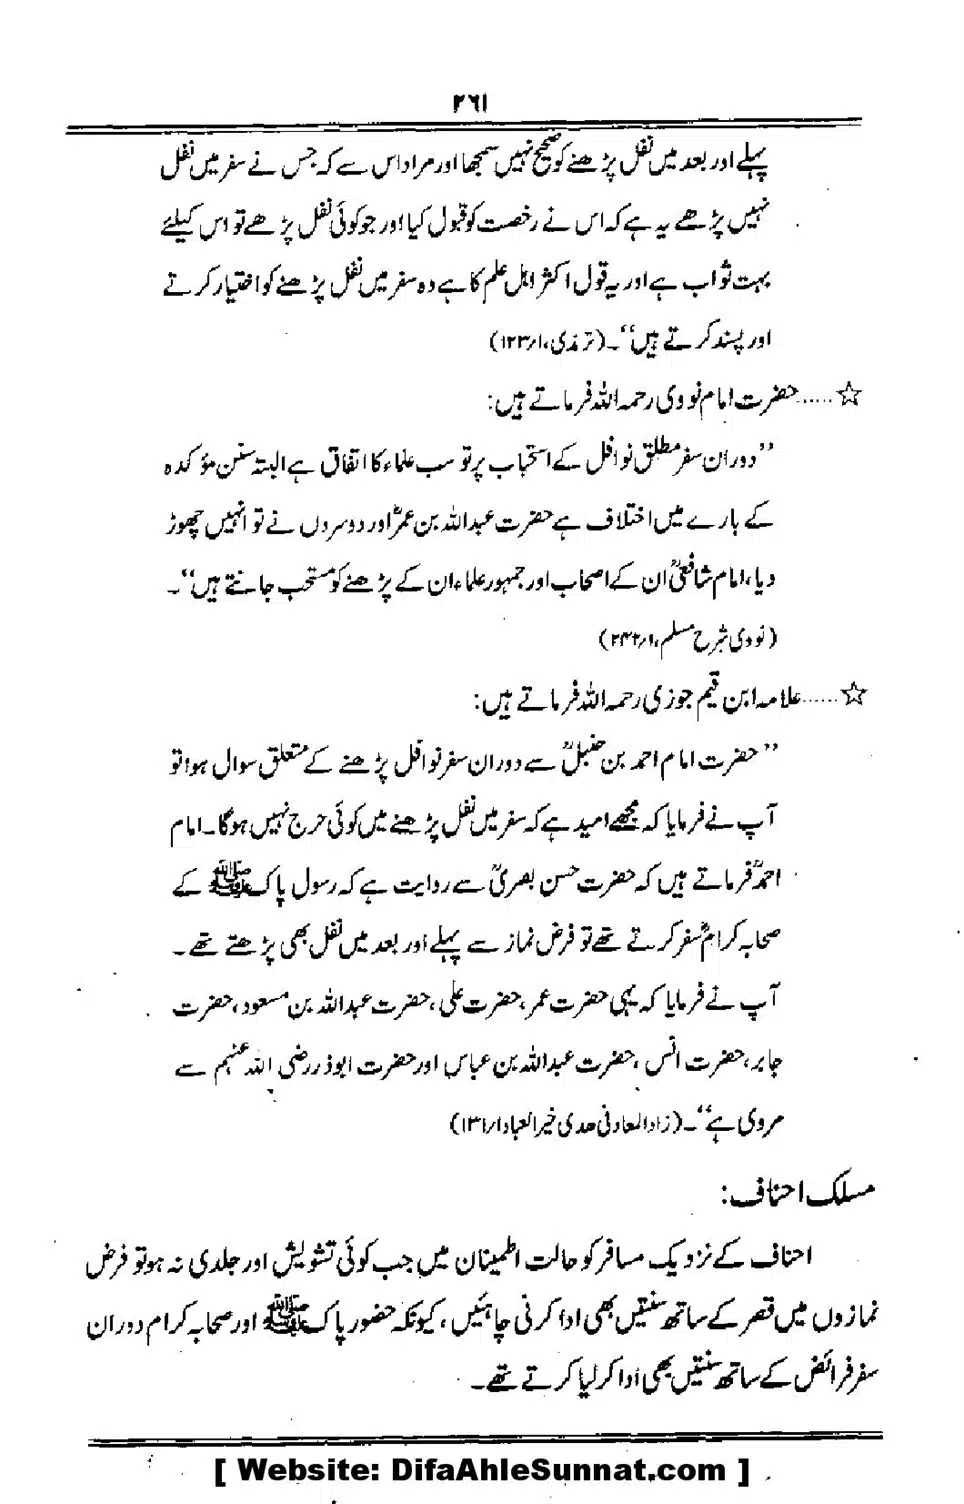 ۲۶۱
پہلے اور بعد میں نفل پڑھنے کو صحیح نہیں سمجھا اور مراد اس سے کہ جس نے سفر میں نفل
نہیں پڑھے یہ ہے کہ اس نے رخصت کو قبول کیا اور جو کوئی نفل پڑھے تو اس کیلئے
بہت ثواب ہے اور یہ قول اکثر اہل علم کا ہے وہ سفر میں نفل پڑھنے کو اختیار کرتے
اور پسند کرتے ہیں‘‘۔ (ترمذی،۱/۱۲۳)
☆.....حضرت امام نووی رحمہ اللہ فرماتے ہیں:
’’دوران سفر مطلق نوافل کے استحباب پر تو سب علماء کا اتفاق ہے البتہ سنن مؤکدہ
کے بارے میں اختلاف ہے حضرت عبداللہ بن عمرؓ اور دوسروں نے تو انہیں چھوڑ
دیا، امام شافعیؒ ان کے اصحاب اور جمہور علماء ان کے پڑھنے کو مستحب جانتے ہیں‘‘۔
(نووی شرح مسلم،۱/۲۴۲)
☆.....علامہ ابن قیم جوزی رحمہ اللہ فرماتے ہیں:
’’حضرت امام احمد بن حنبلؒ سے دوران سفر نوافل پڑھنے کے متعلق سوال ہوا تو
آپ نے فرمایا کہ مجھے امید ہے کہ سفر میں نفل پڑھنے میں کوئی حرج نہیں ہوگا۔ امام
احمدؒ فرماتے ہیں کہ حضرت حسن بصریؒ سے روایت ہے کہ رسول پاک ﷺ کے
صحابہ کرامؓ سفر کرتے تھے تو فرض نماز سے پہلے اور بعد میں نفل بھی پڑھتے تھے۔
آپ نے فرمایا کہ یہی حضرت عمر، حضرت علی، حضرت عبداللہ بن مسعود، حضرت
جابر، حضرت انس، حضرت عبداللہ بن عباس اور حضرت ابوذر رضی اللہ عنہم سے
مروی ہے‘‘۔ (زاد المعاد فی ھدی خیر العباد ۱/۱۳۱)
مسلک احناف:
احناف کے نزدیک مسافر کو حالت اطمینان میں جب کوئی تشویش اور جلدی نہ ہو تو فرض
نمازوں میں قصر کے ساتھ سنتیں بھی ادا کرنی چاہئیں، کیونکہ حضور پاک ﷺ اور صحابہ کرام دوران
سفر فرائض کے ساتھ سنتیں بھی ادا کر لیا کرتے تھے۔
[ Website: DifaAhleSunnat.com ]